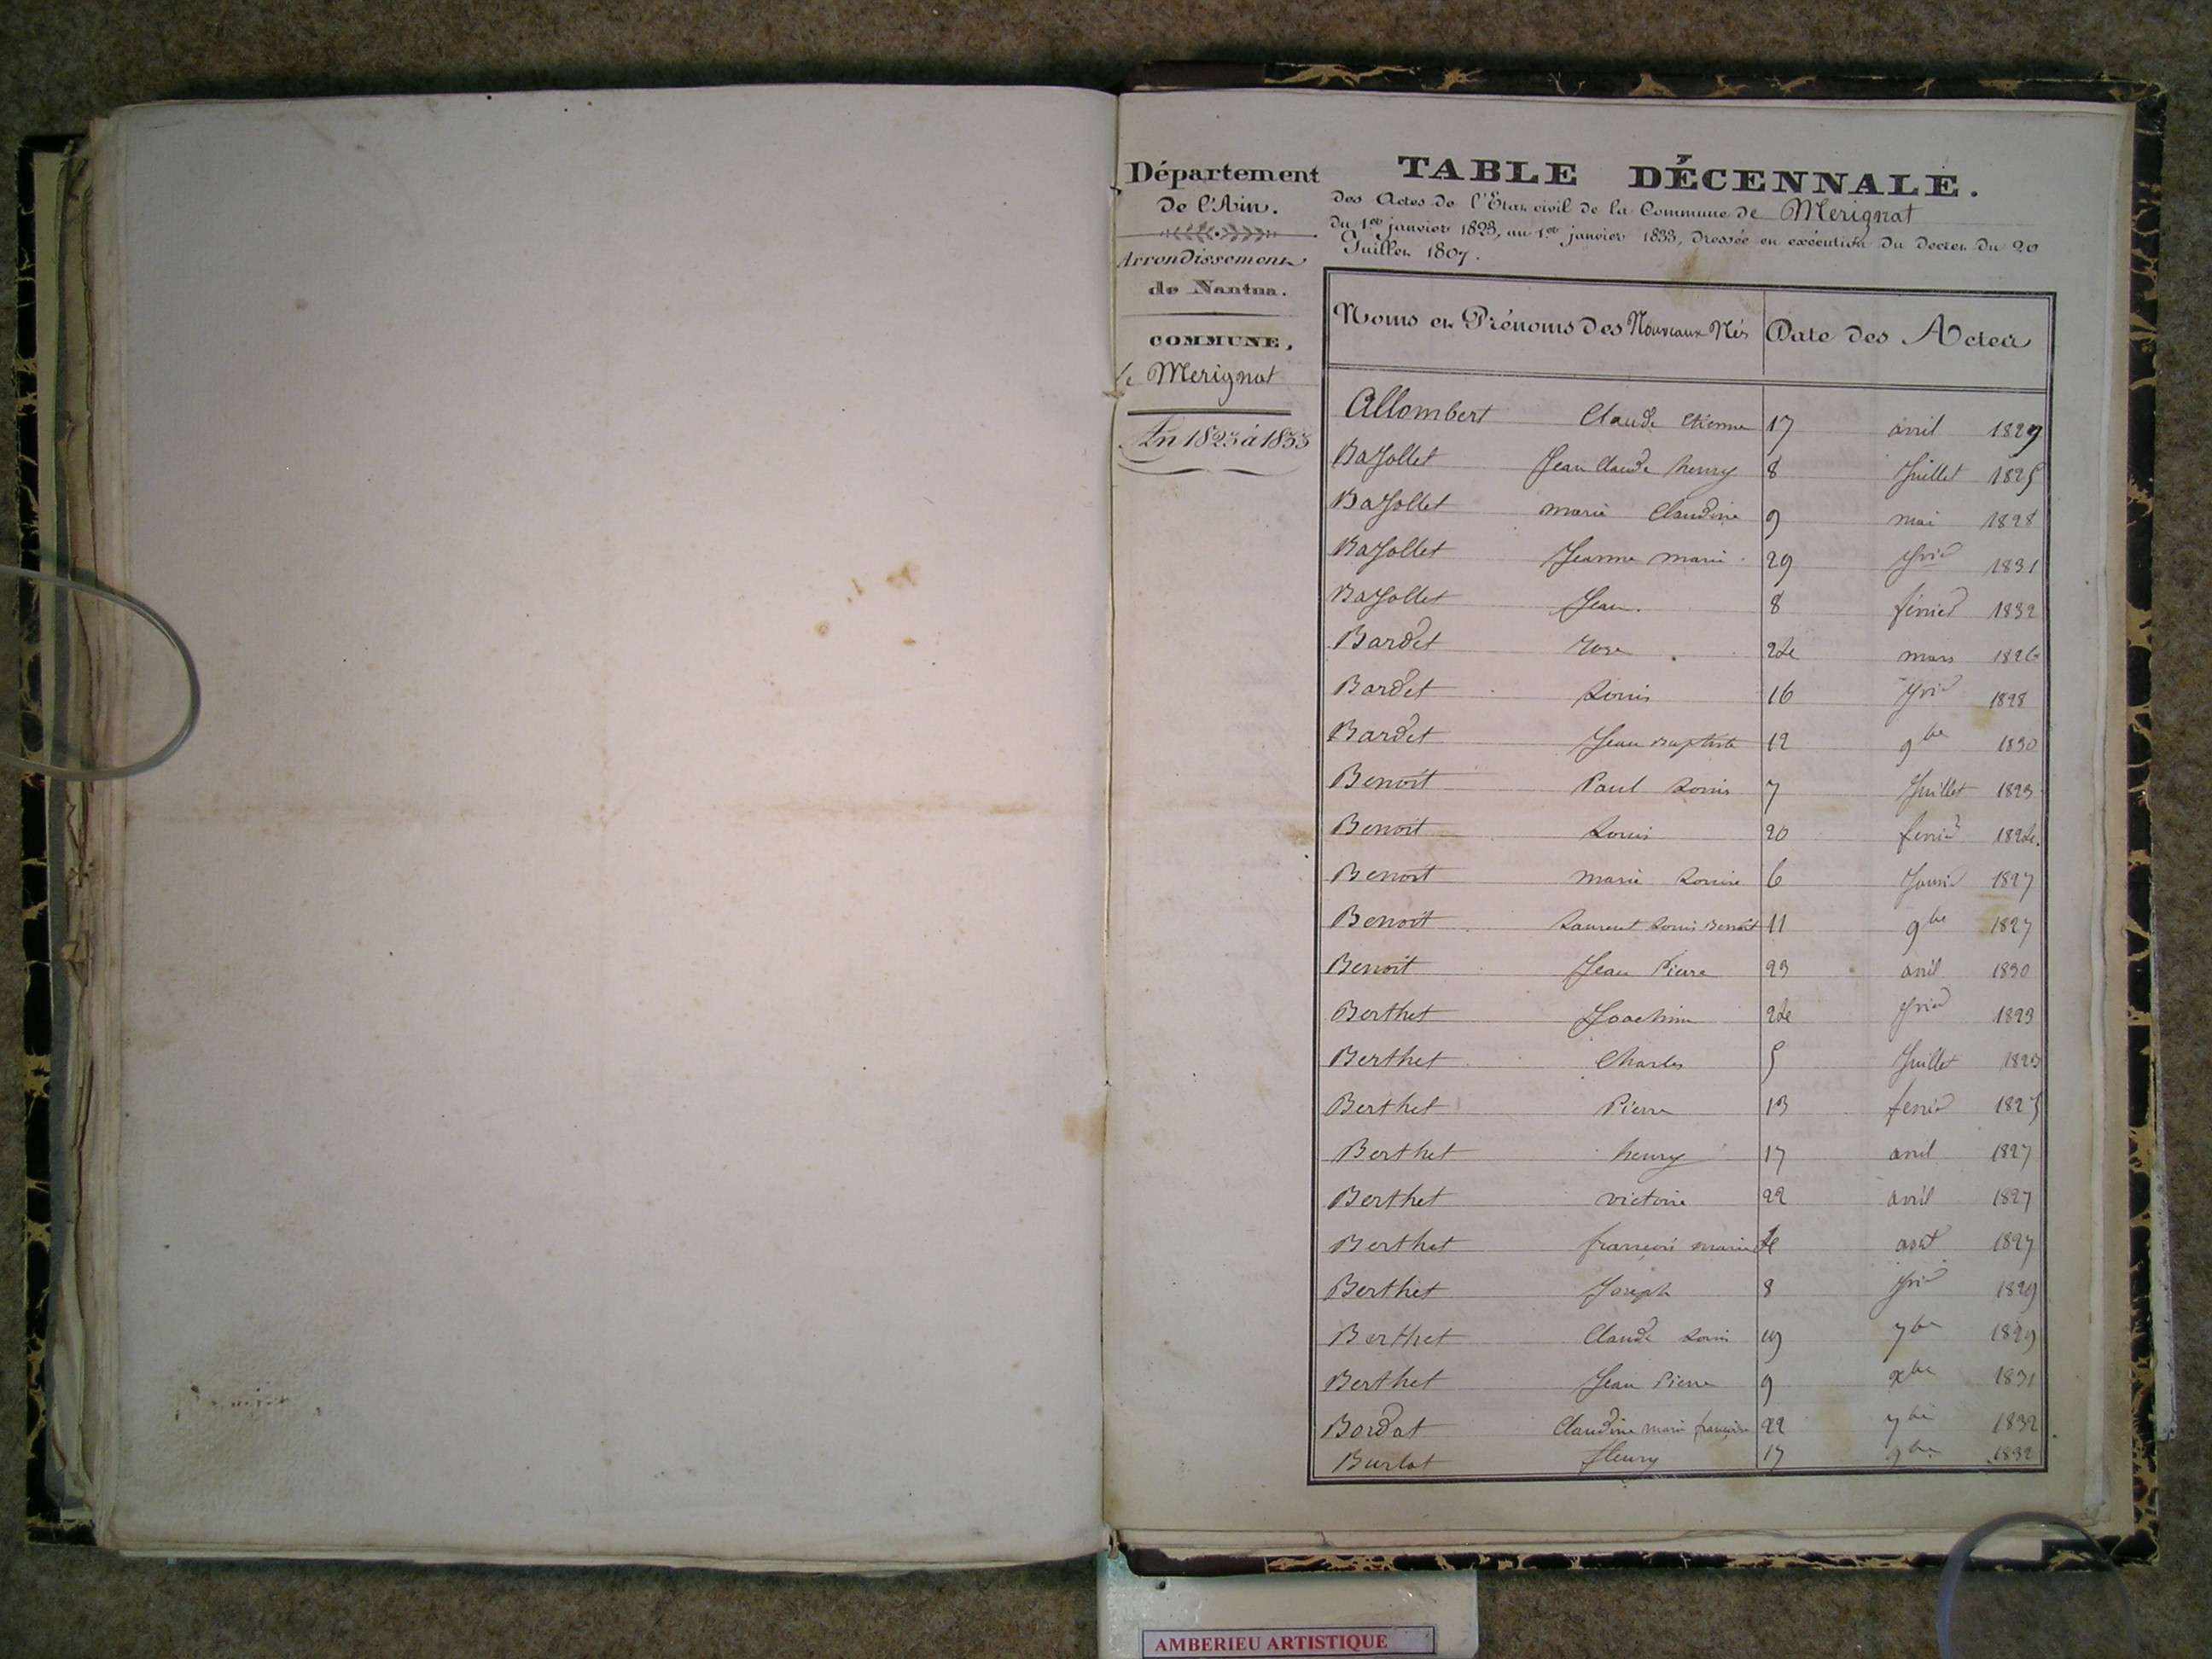 Département
de l'Ain.
Arrondissement
de Nantua.
COMMUNE,
de Merignat
An 1823 à 1833
TABLE DÉCENNALE.
des Actes de l'Etat civil de la Commune de Merignat
du 1er janvier 1823, au 1er janvier 1833, dressée en exécution du décret du 20
Juillet 1807.
Noms et Prénoms des Nouveaux Nés Date des Actes
Allombert Claude Etienne 17 avril 1829
BaJollet Jean Claude henry 8 Juillet 1825
BaJollet marie Claudine 9 mai 1828
BaJollet Jeanne marie 29 1831
BaJollet Jean. 8 février 1832
Bardet rose 24 mars 1826
Bardet Louis 16 1828
Bardet Jean Baptiste 12 9bre 1830
Benoit Paul Louis 7 Juillet 1823
Benoit Louis 20 fevrier 1824.
Benoit marie Louise 6 Janvier 1827
Benoit Laurent Louis Benoit 11 9bre 1827
Benoit Jean Pierre 23 avril 1830
Berthet Joachim 24 1823
Berthet Charles 5 Juillet 1823
Berthet Pierre 13 fevrier 1825
Berthet henry 17 avril 1827
Berthet victoire 22 avril 1827
Berthet françois marie 4 aout 1827
Berthet Joseph 8 1829
Berthet Claude Louis 19 7bre 1829
Berthet Jean Pierre 9 xbre 1831
Bordat Claudine marie françoise 22 7bre 1832
Burlat fleury 17 9bre 1832
AMBERIEU ARTISTIQUE